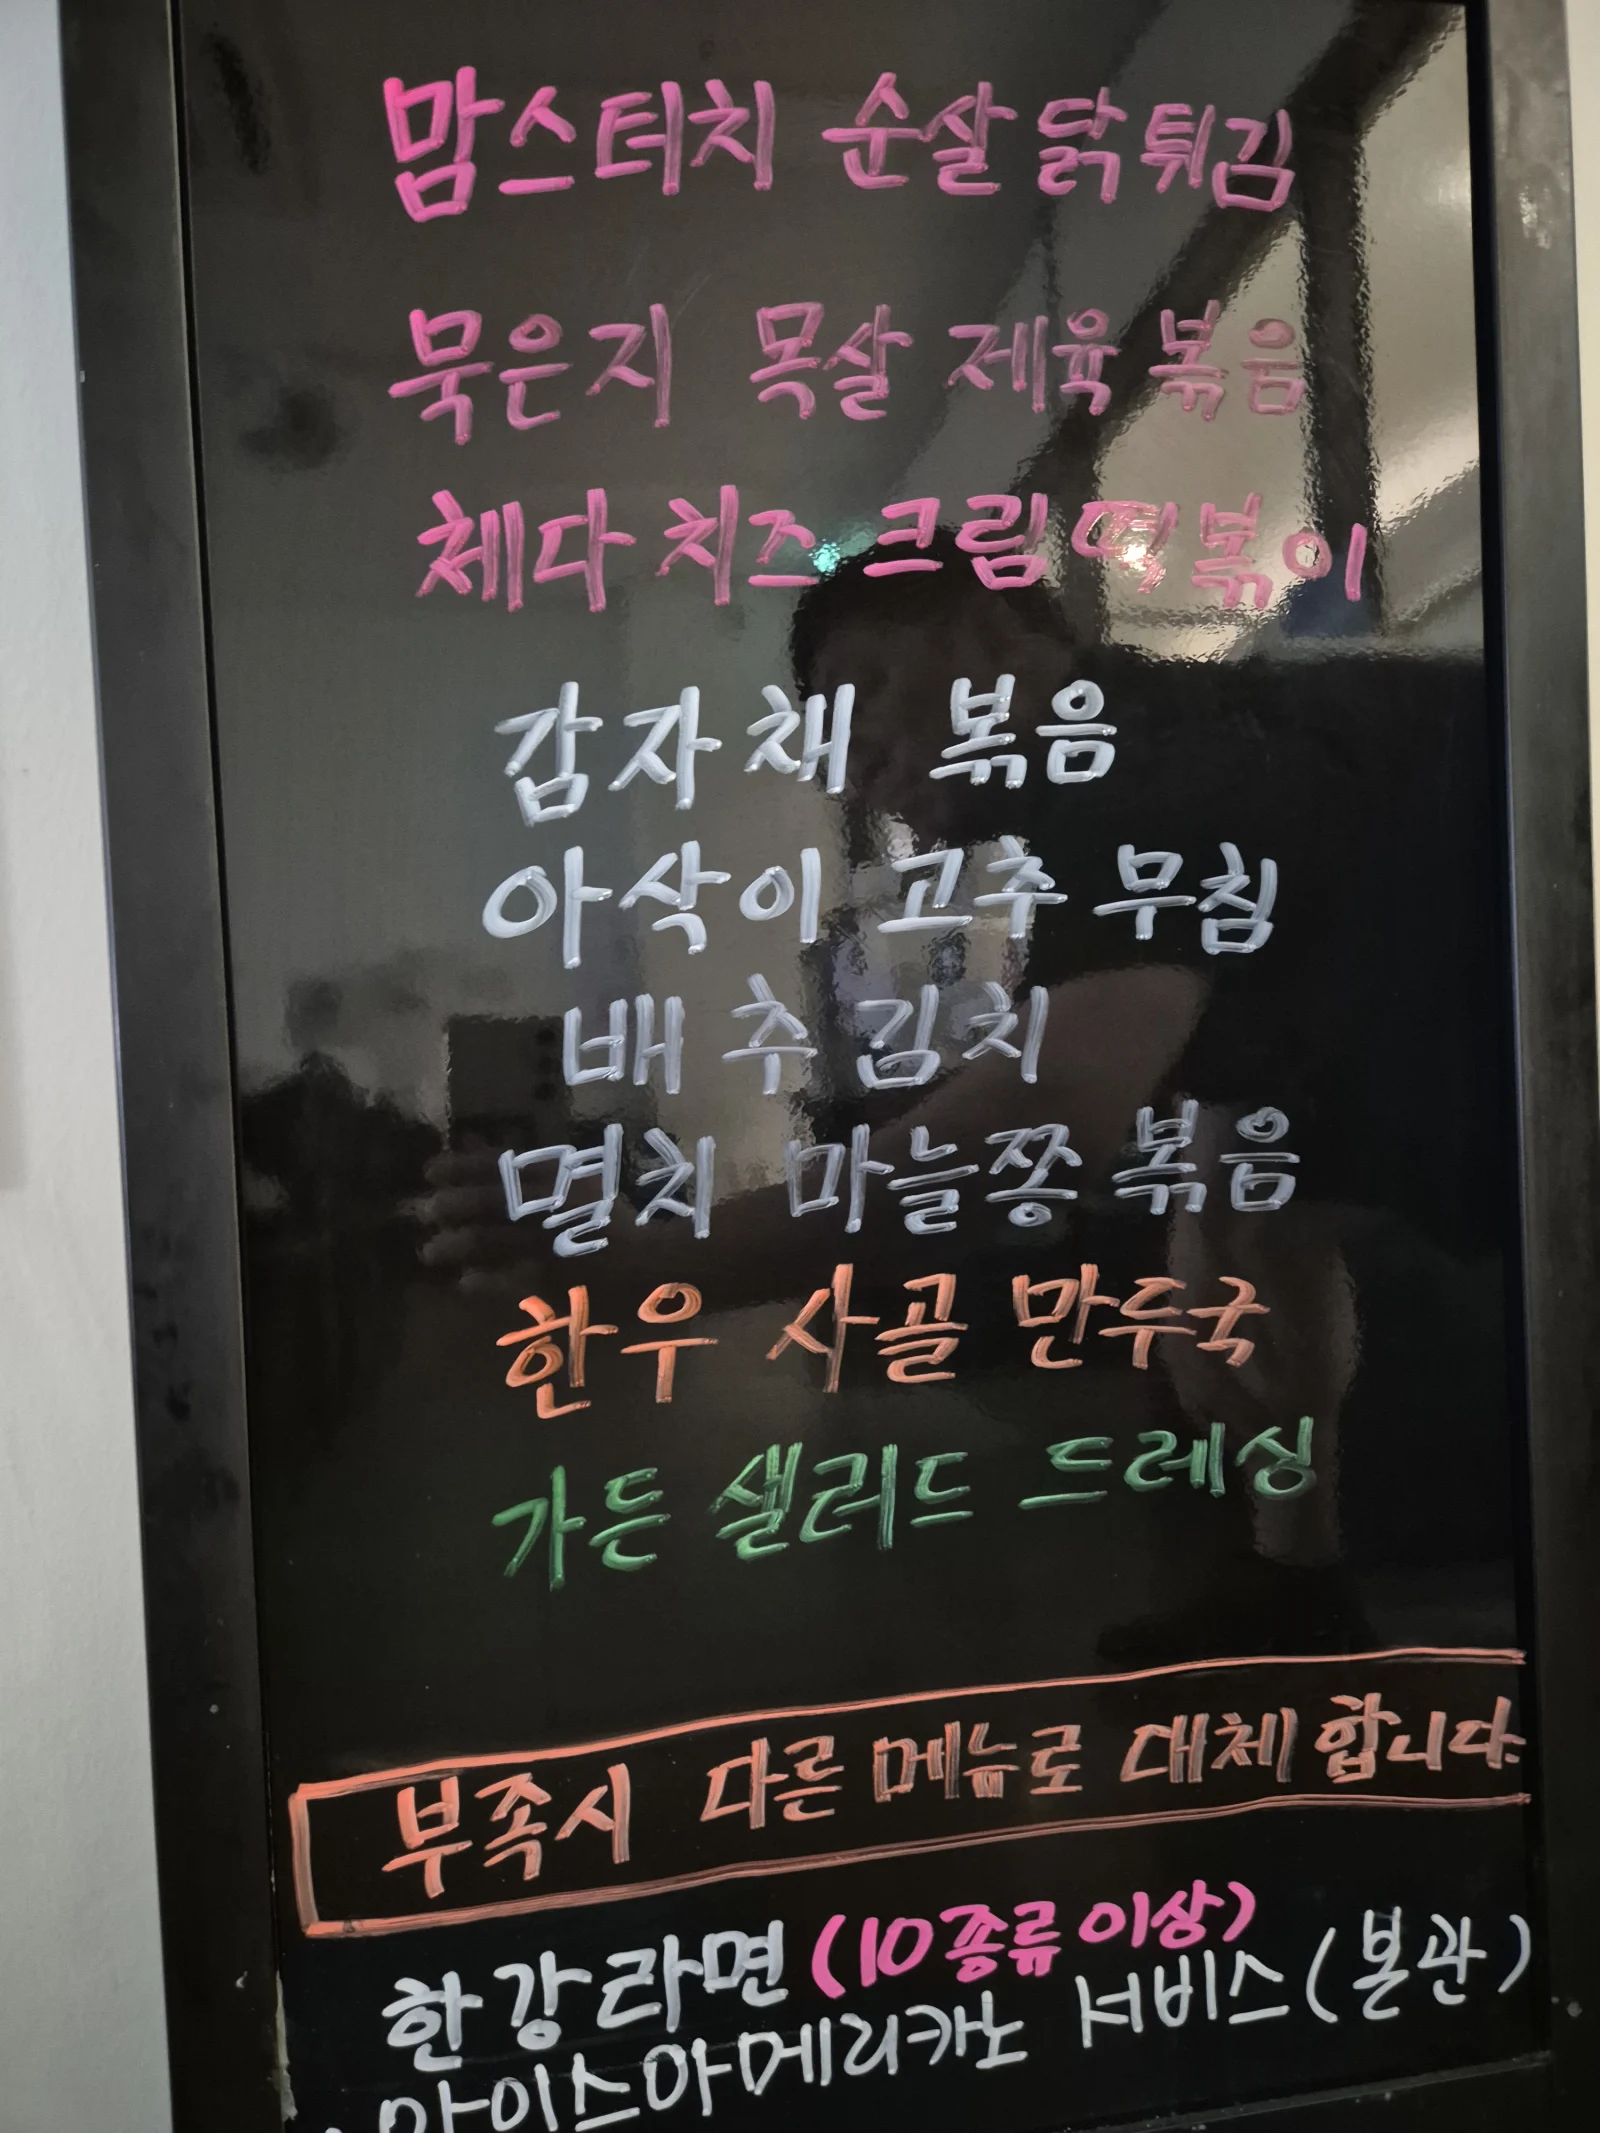 맘스터치 순살 닭튀김
묵은지 목살 제육 볶음
체다 치즈 크림 떡볶이
감자채 볶음
아삭이 고추 무침
배추김치
멸치 마늘쫑 볶음
한우 사골 만두국
가든 샐러드 드레싱
부족시 다른 메뉴로 대체 합니다.
한강라면 (10종류 이상)
아이스아메리카노 서비스 (본관)